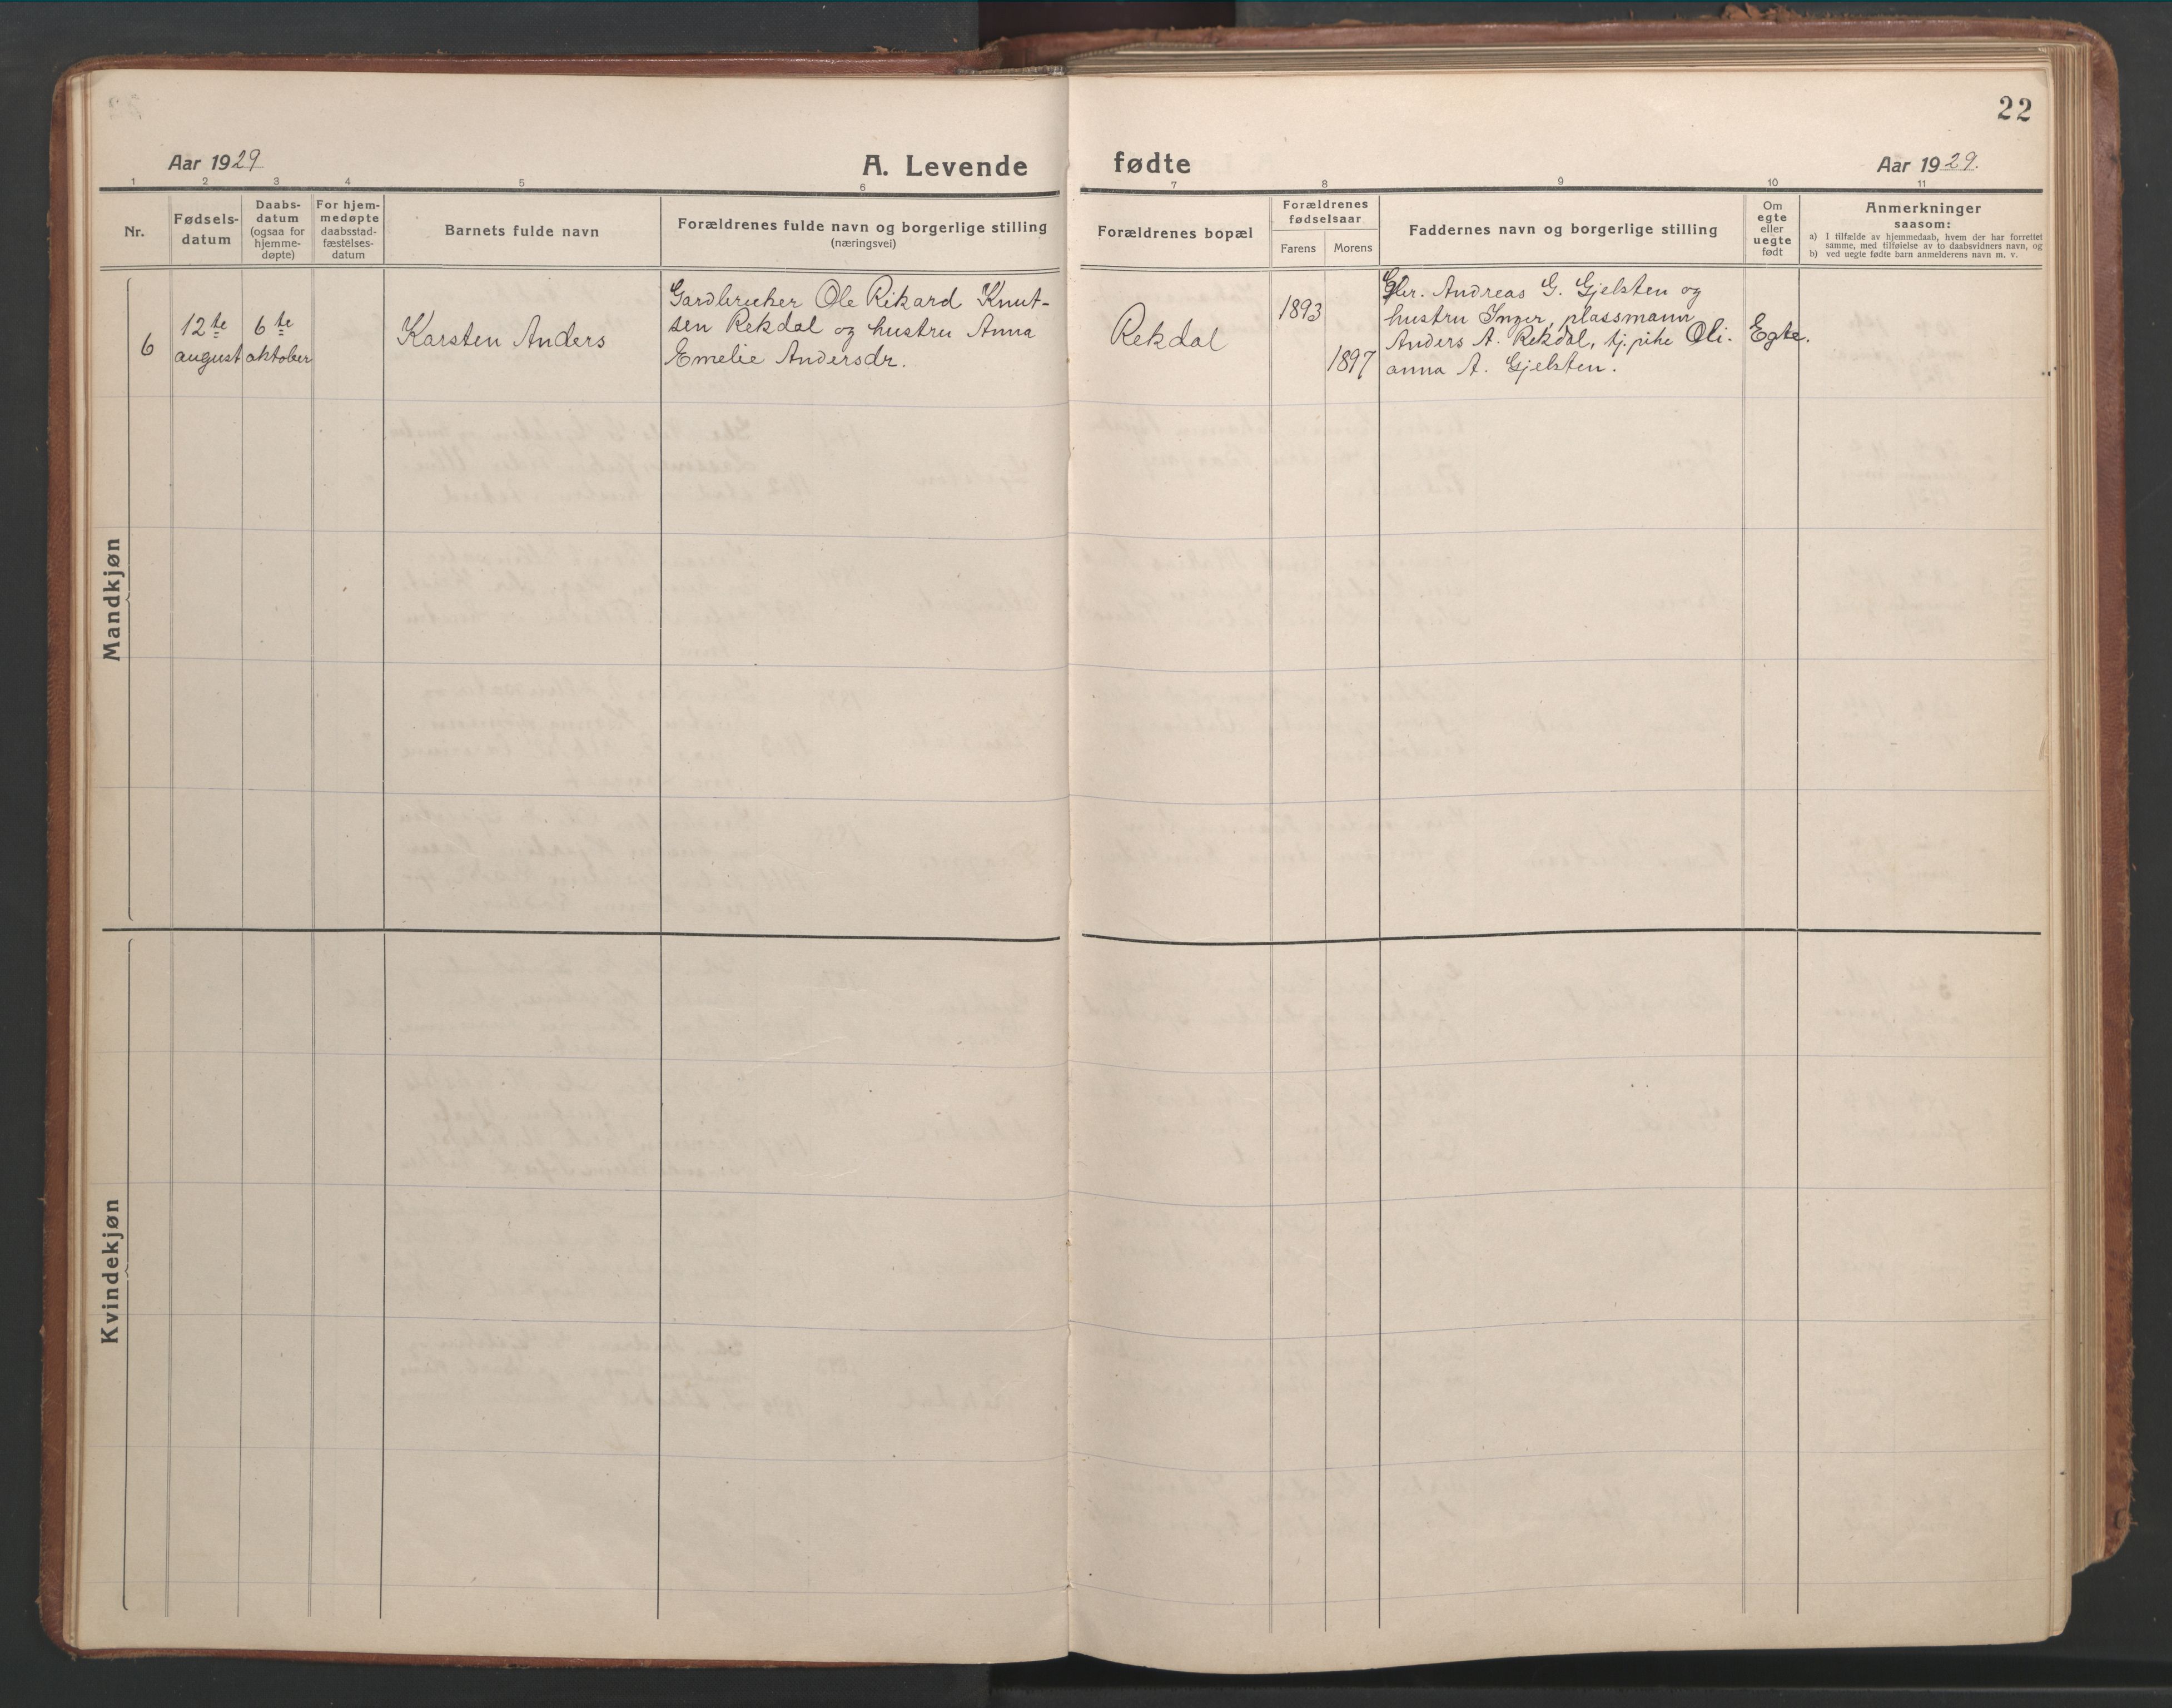 22
Aar 1929
A. Levende
fødte
Aar 1929.
1 2 3 4 5 6 7 8 9 10 11
Nr.
Fødsels-
datum
Daabs-
datum
(ogsaa for
hjemme-
døpte)
For hjem-
medøpte
daabsstad-
fæstelses-
datum
Barnets fulde navn
Forældrenes fulde navn og borgerlige stilling
(næringsvei)
Forældrenes bopæl
Forældrenes
fødselsaar
Farens
Morens
Faddernes navn og borgerlige stilling
Om
egte
eller
uegte
født
Anmerkninger
saasom:
a) I tilfælde av hjemmedaab, hvem der har forrettet
samme, med tilføielse av to daabsvidners navn, og
b) ved uegte fødte barn anmelderens navn m. v.
Mandkjøn
6
12te
august
6te
oktober
Karsten Anders
Gardbruker Ole Rikard Knut-
sen Rekdal og hustru Anna
Emelie Andersdr.
Rekdal
1893
1897
Gbr. Andreas G. Gjelsten og
hustru Inger, plassmann
Anders A. Rekdal, tj.pike Oli-
anna A. Gjelsten.
Egte.
Kvindekjøn